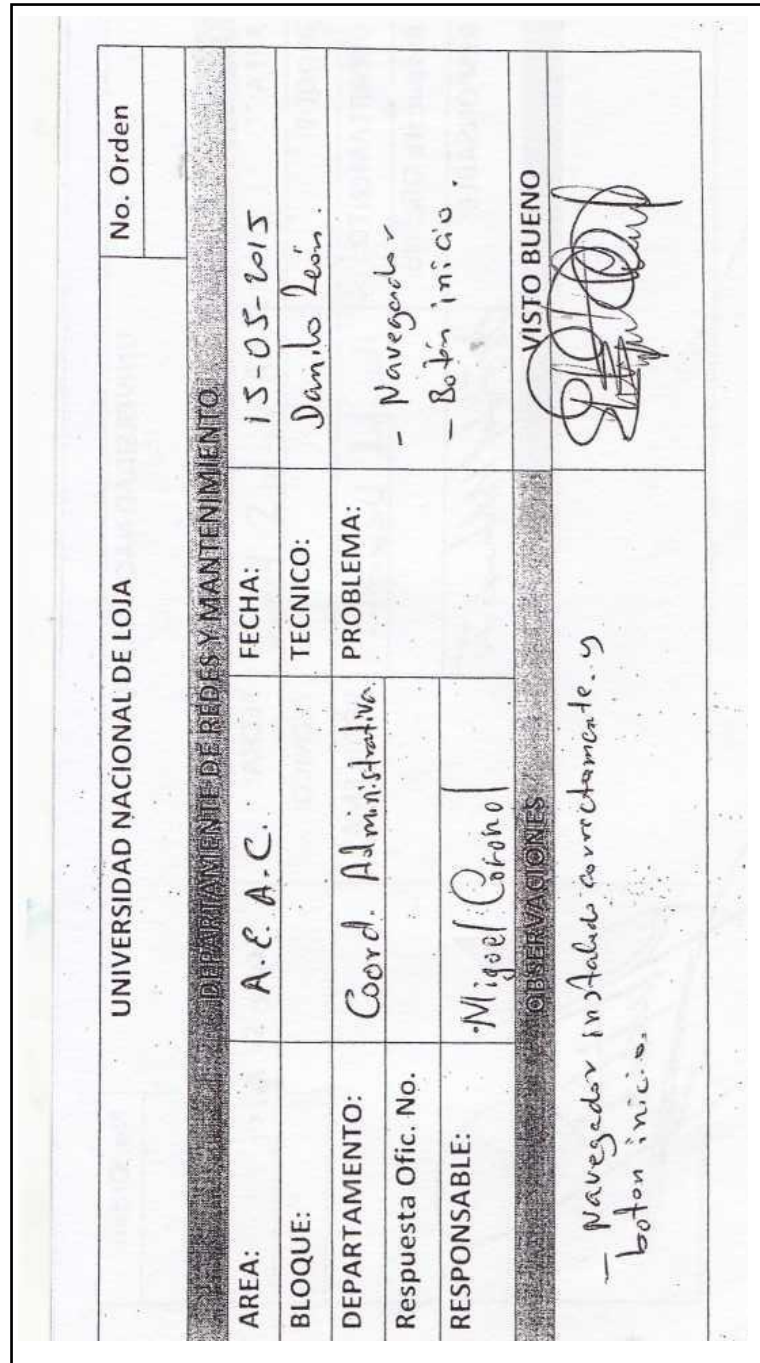 UNIVERSIDAD NACIONAL DE LOJA
No. Orden
DEPARTAMENTE DE REDES Y MANTENIMIENTO
AREA: A.E.A.C. FECHA: 15-05-2015
BLOQUE: TECNICO: Danilo León.
DEPARTAMENTO: Coord. Administrativa. PROBLEMA: - Navegador
- Botón inicio.
Respuesta Ofic. No.
RESPONSABLE: Miguel Coronel
OBSERVACIONES VISTO BUENO
- Navegador instalado correctamente. y
boton inicio.